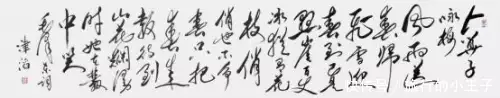 卜算子
咏梅
风雨送
春归
飞雪迎
春到已是
悬崖百丈
冰犹有花
枝俏
俏也不争
春只把
春来报
待到
山花烂漫
时她在丛
中笑
毛泽东词
的小王子